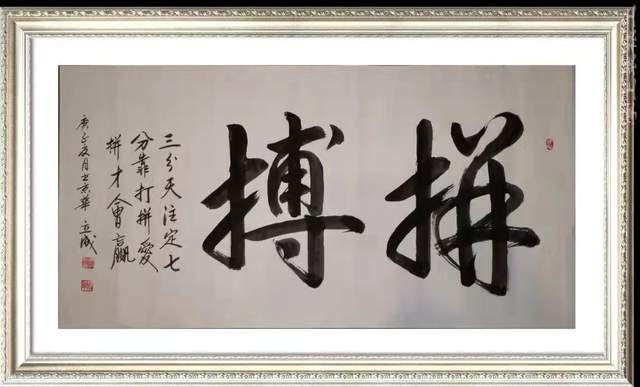 拼搏
三分天注定七
分靠打拼愛
拼才會贏
庚子夏月书京華 立成